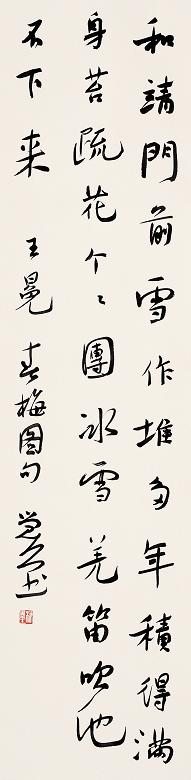 和靖門前雪作堆多年積得滿
身苔疏花个々團冰雪羌笛吹他
不下来 王冕素梅圖句